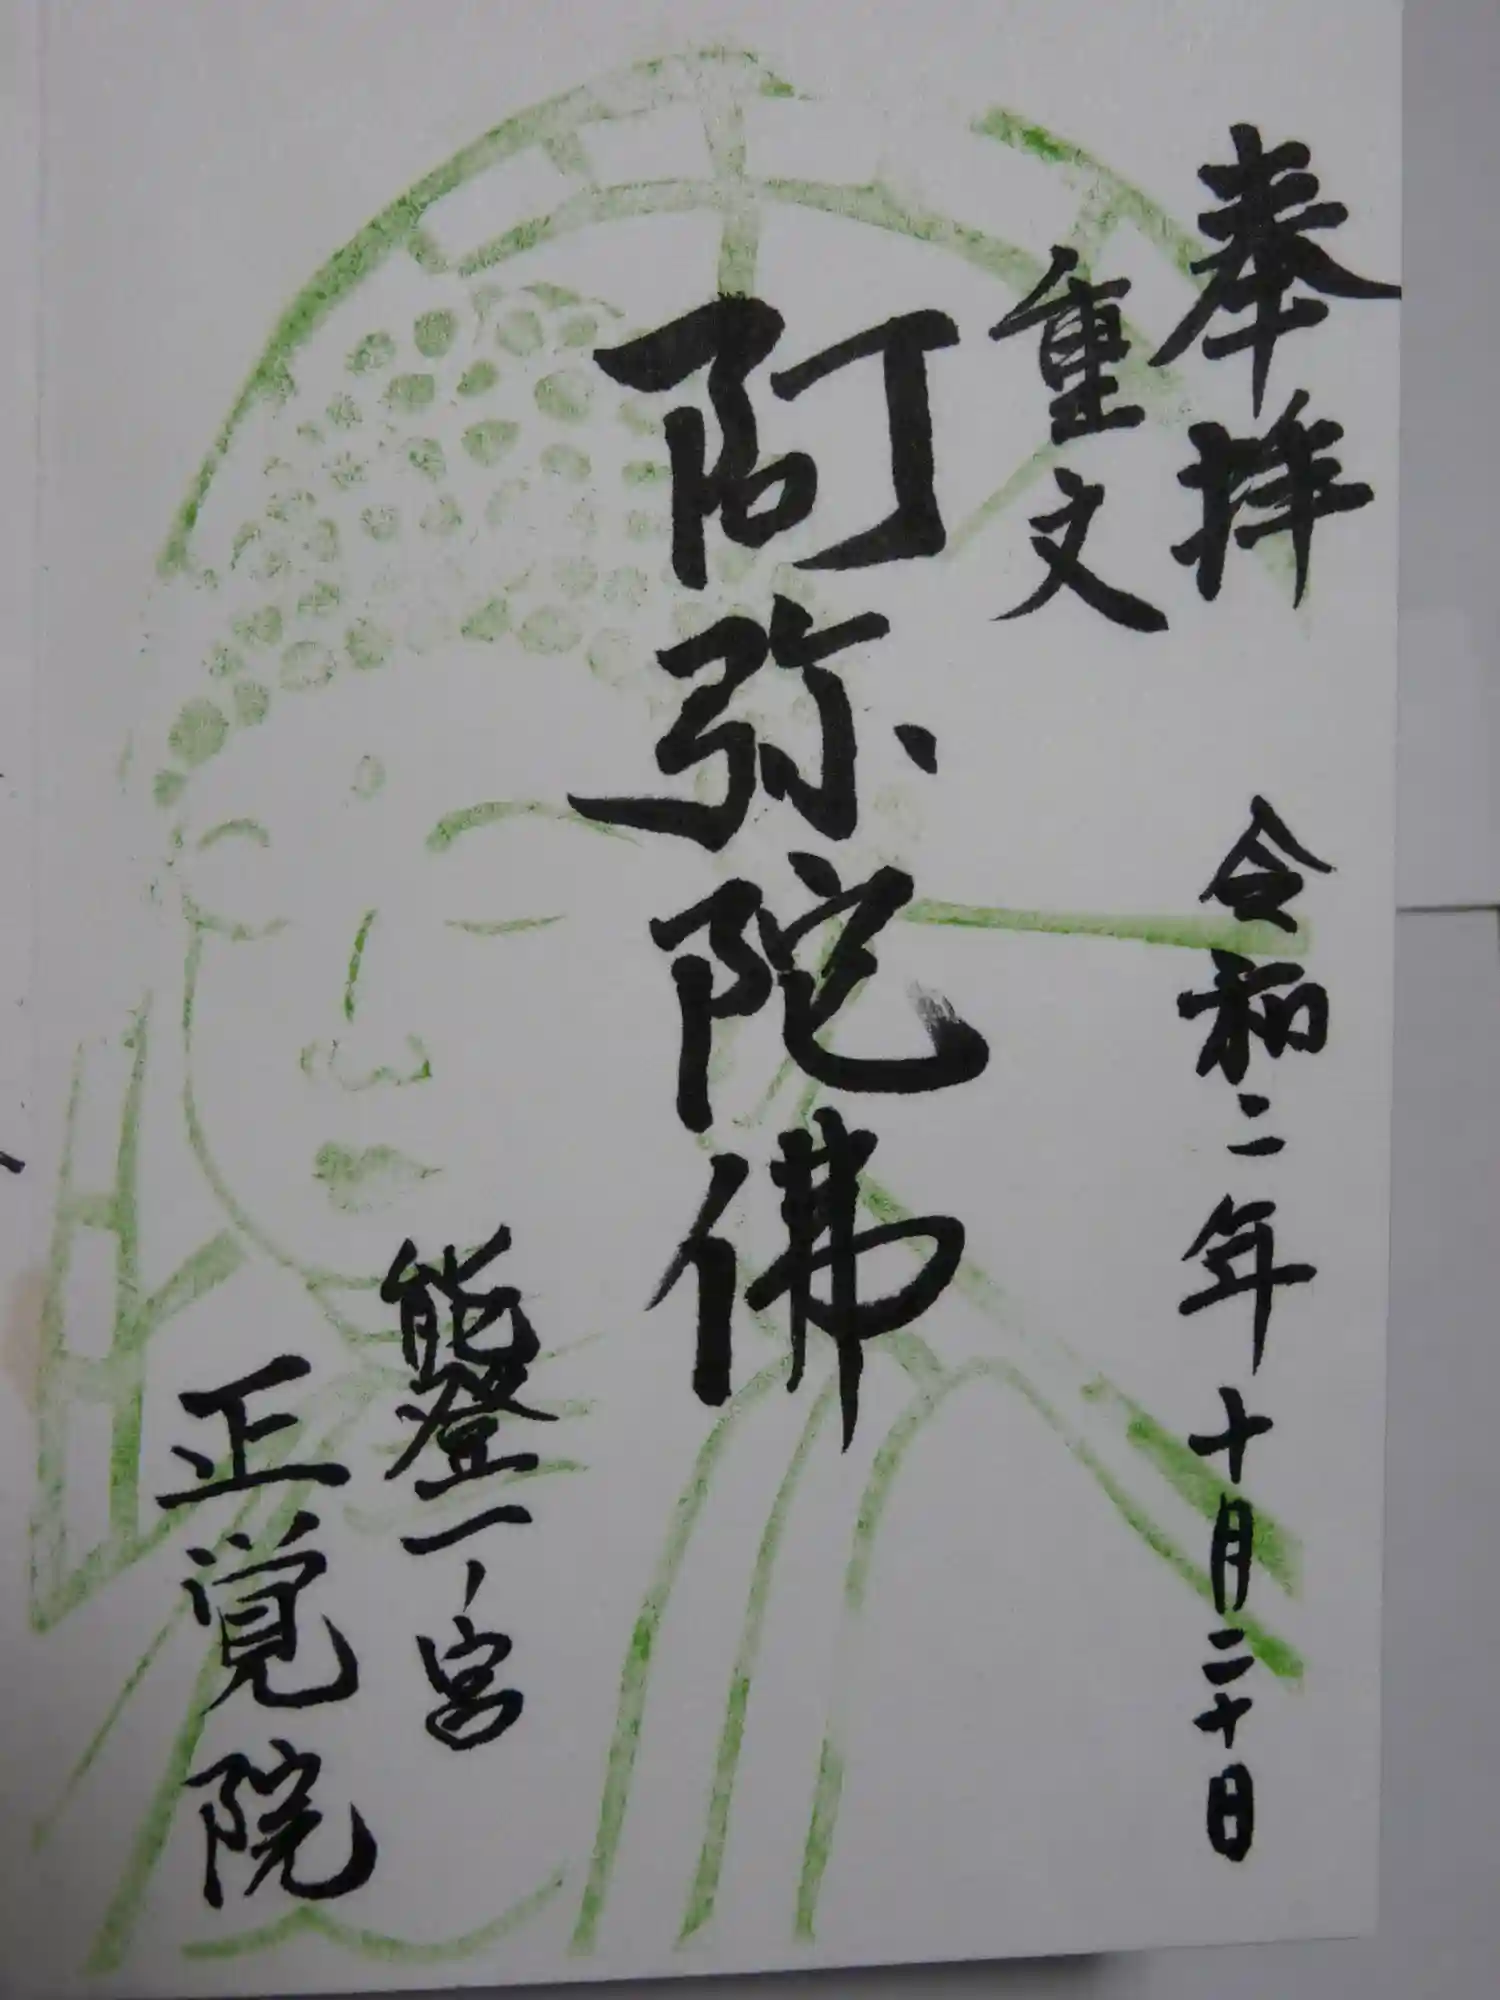 奉拝
令和二年十月二十日
重文
阿弥陀佛
能登一ノ宮
正覚院